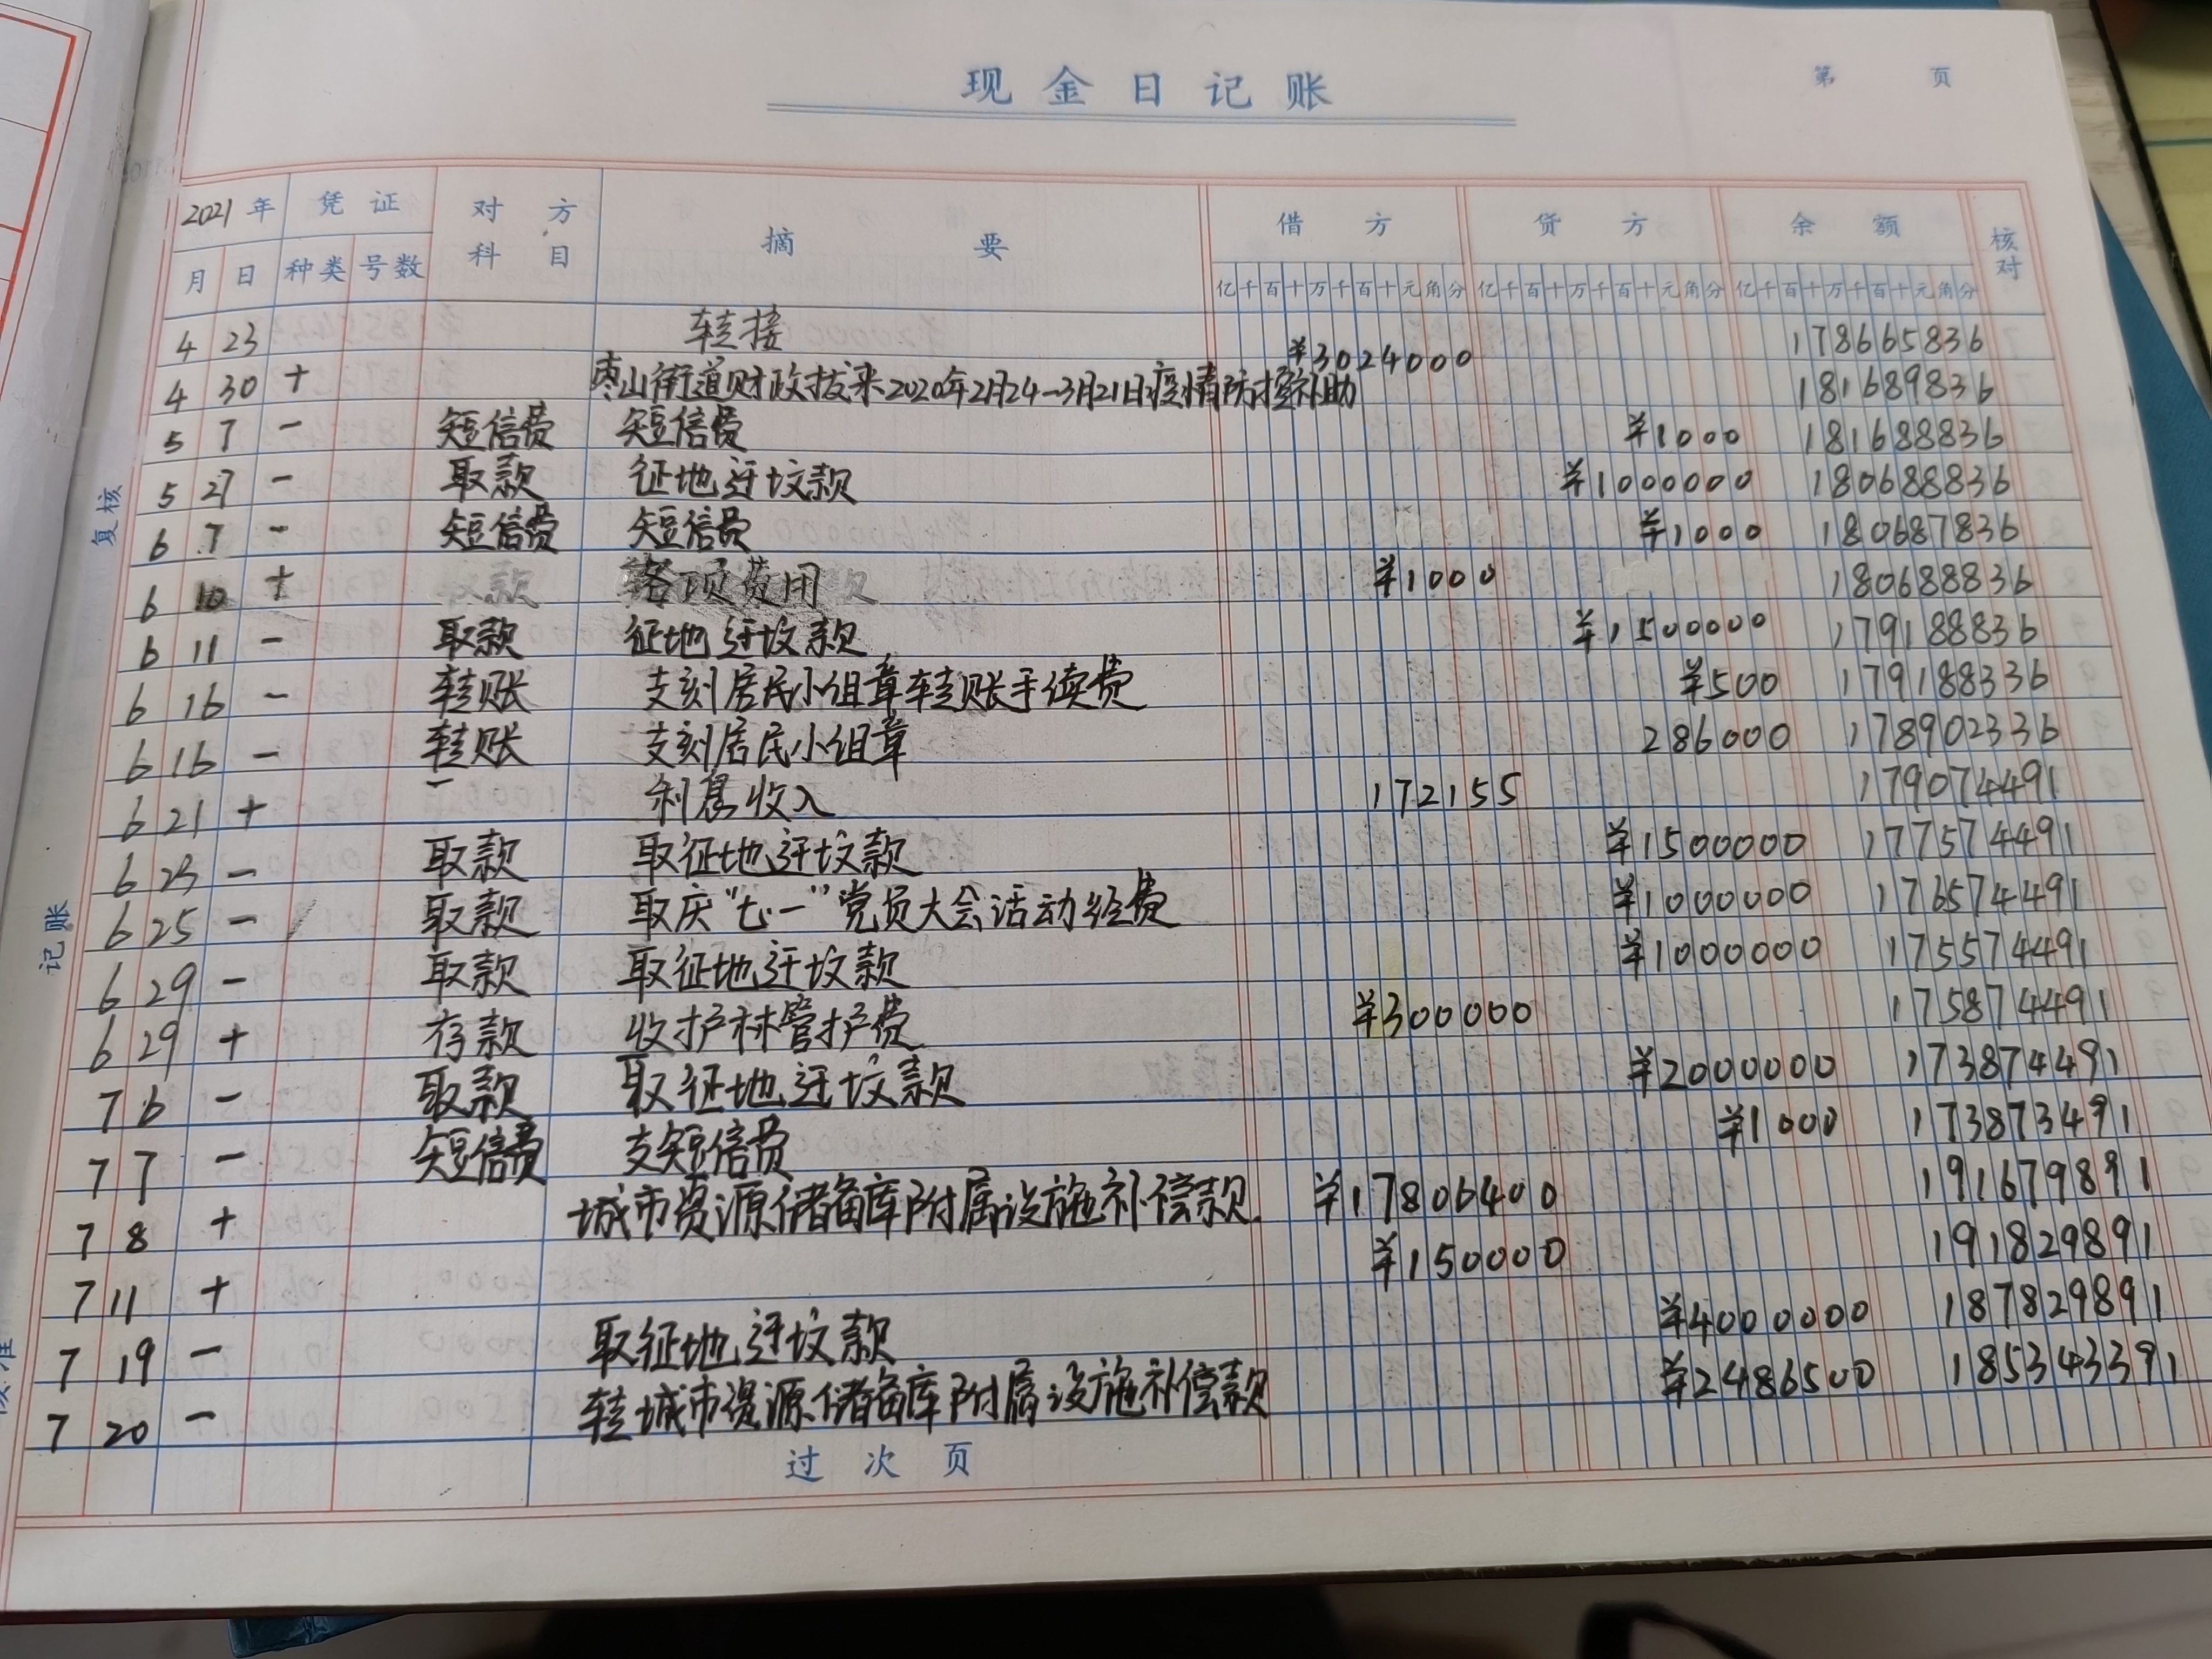 现金日记账
第 页
2021年 凭证 对方科目 摘要 借方 贷方 余额 核对
月 日 种类 号数 亿千百十万千百十元角分 亿千百十万千百十元角分 亿千百十万千百十元角分
4 23 转接 178665836
4 30 + 枣山街道财政拨来2020年2月24-3月21日疫情防控补助 ¥3024000 181689836
5 7 - 短信费 短信费 ¥1000 181688836
5 27 - 取款 征地迁坟款 ¥1000000 180688836
6 7 - 短信费 短信费 ¥1000 180687836
6 10 + 各项费用 ¥1000 180688836
6 11 - 取款 征地迁坟款 ¥1500000 179188836
6 16 - 转账 支刻居民小组章转账手续费 ¥500 179188336
6 16 - 转账 支刻居民小组章 286000 178902336
6 21 + - 利息收入 172155 179074491
6 23 - 取款 取征地迁坟款 ¥1500000 177574491
6 25 - 取款 取庆“七一”党员大会活动经费 ¥1000000 176574491
6 29 - 取款 取征地迁坟款 ¥1000000 175574491
6 29 + 存款 收护林管护费 ¥300000 175874491
7 6 - 取款 取征地迁坟款 ¥2000000 173874491
7 7 - 短信费 支短信费 ¥1000 173873491
7 8 + 城市资源储备库附属设施补偿款. ¥17806400 191679891
7 11 + ¥150000 191829891
7 19 - 取征地迁坟款 ¥4000000 187829891
7 20 - 转城市资源储备库附属设施补偿款 ¥2486500 185343391
过次页
复核
记账